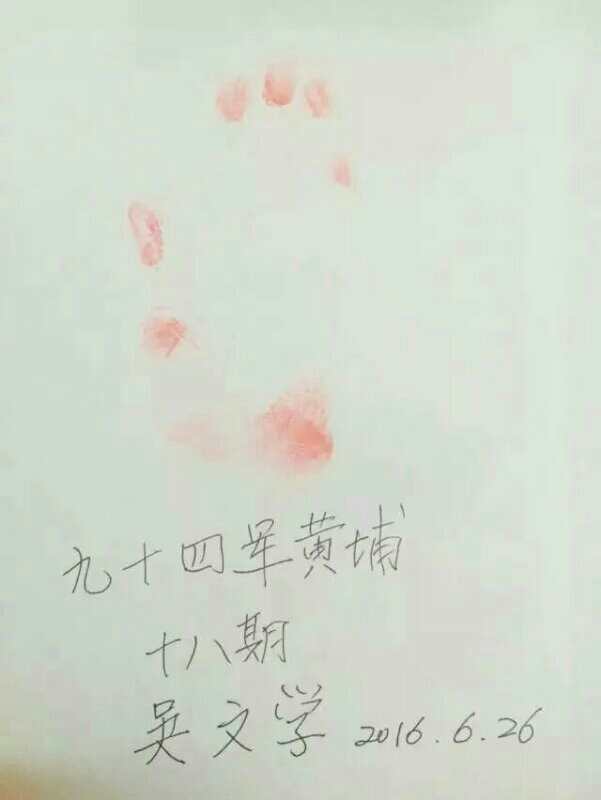 九十四军黄埔
十八期
吴文学 2016.6.26